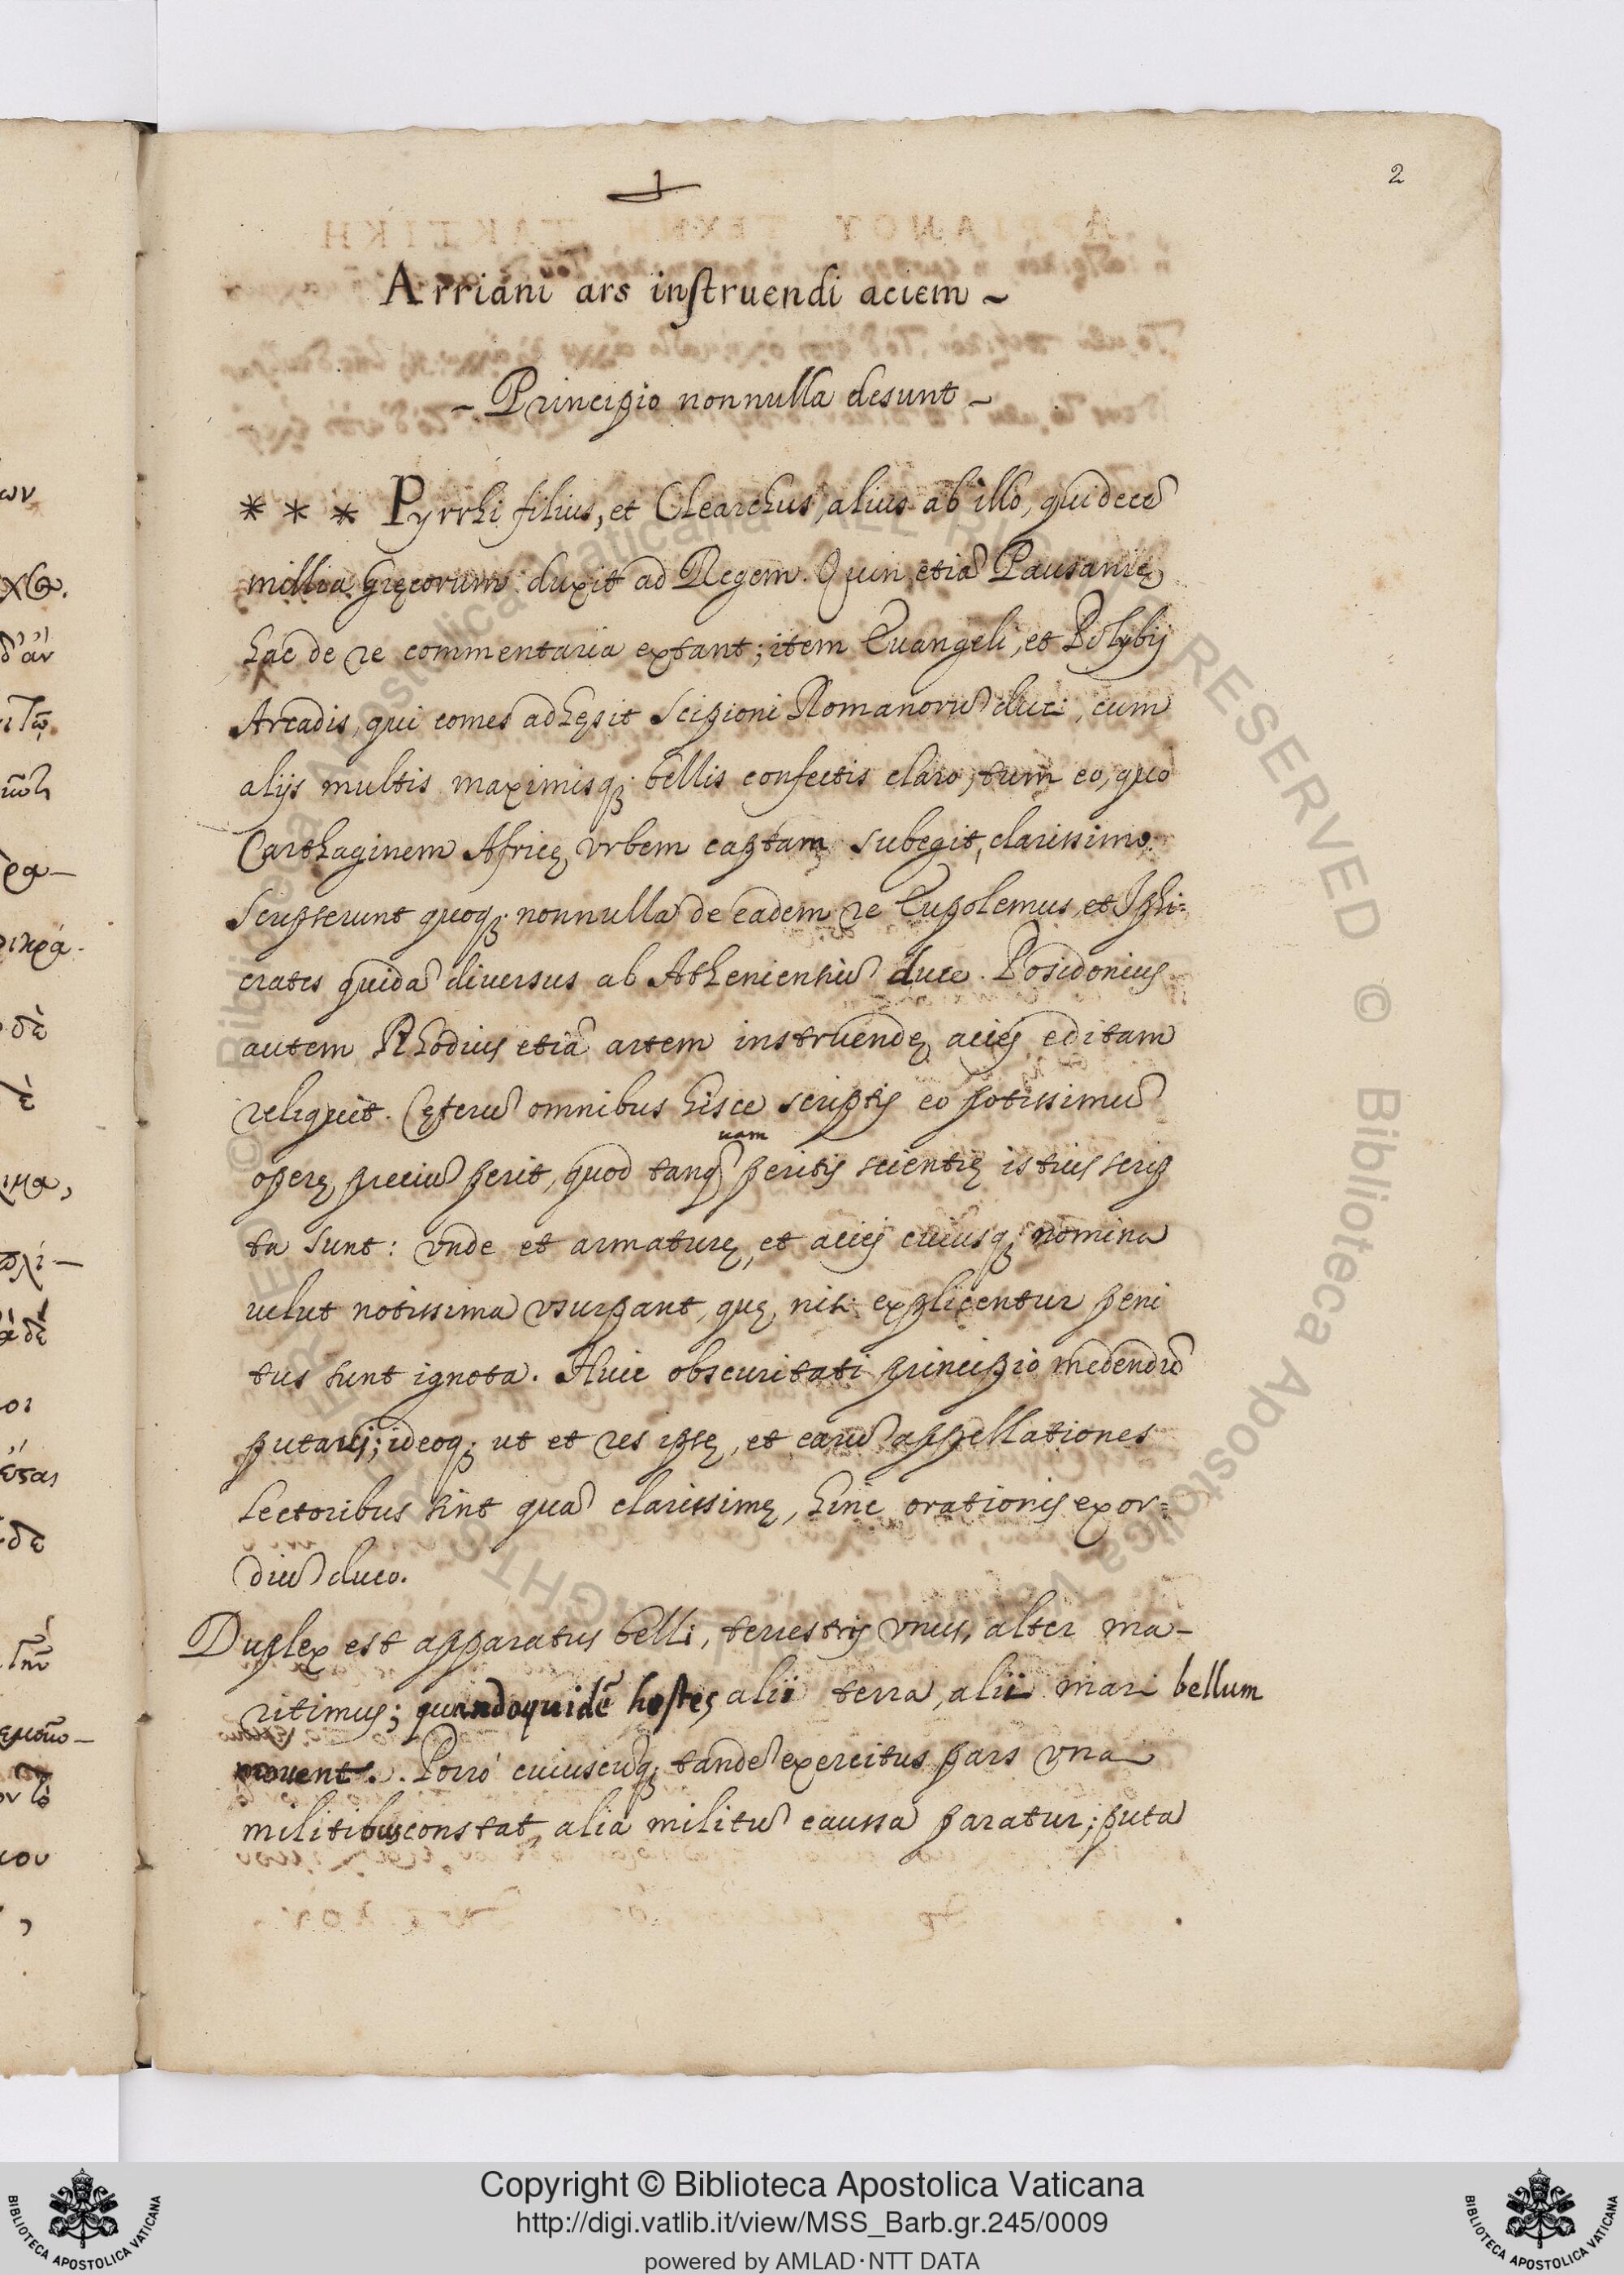 2
Arriani ars instruendi aciem ~
- Principio nonnulla desunt -
* * * Pyrrhi filius, et Clearchus, alius ab illo, qui decẽ
millia Gręcorum duxit ad Regem. Quin etiã Pausanię
hac de re commentaria extant; item Euangeli, et Polybij
Arcadis, qui comes adhęsit Scipioni Romanorũ duci, cum
alijs multis maximisq; bellis confectis claro, tum eo, quo
Carthaginem Africę vrbem captam subegit, clarissimo.
Scripserunt quoq; nonnulla de eadem re Eupolemus, et Iphi=
crates quidã diuersus ab Atheniensiũ duce. Posidonius
autem Rhodius etiã artem instruendę aciej editam
reliquit. Cęterũ omnibus hisce scriptis eo potissimũ
uam
operę preciũ perit, quod tanq̃ peritis scientię istius scrip
ta sunt: vnde et armaturę, et aciej cuiusq; nomina
uelut notissima vsurpant, quę, nisi explicentur peni
tus sunt ignota. Huic obscuritati principio medendũ
putaui; ideoq; ut et res ipsę, et earũ appellationes
lectoribus sint quã clarissimę, hinc orationis exor=
diũ duco.
Duplex est apparatus belli, terrestris vnus, alter ma-
ritimus; quandoquidẽ hostes alii terra, alii mari bellum
mouent. Porró cuiuscũq; tandẽ exercitus pars vna
militibus constat, alia militũ caussa paratur; puta
ων
δ'ἀν
ρα-
ικρά-
δὲ
ιμα,
πλί-
οι
δε
εμου-
ιου
© Biblioteca Apostolica Vaticana ALL RIGHTS RESERVED © Biblioteca Apostolica Vaticana ALL RIGHTS RESERVED
Copyright © Biblioteca Apostolica Vaticana
http://digi.vatlib.it/view/MSS_Barb.gr.245/0009
powered by AMLAD·NTT DATA
BIBLIOTECA APOSTOLICA VATICANA
BIBLIOTECA APOSTOLICA VATICANA